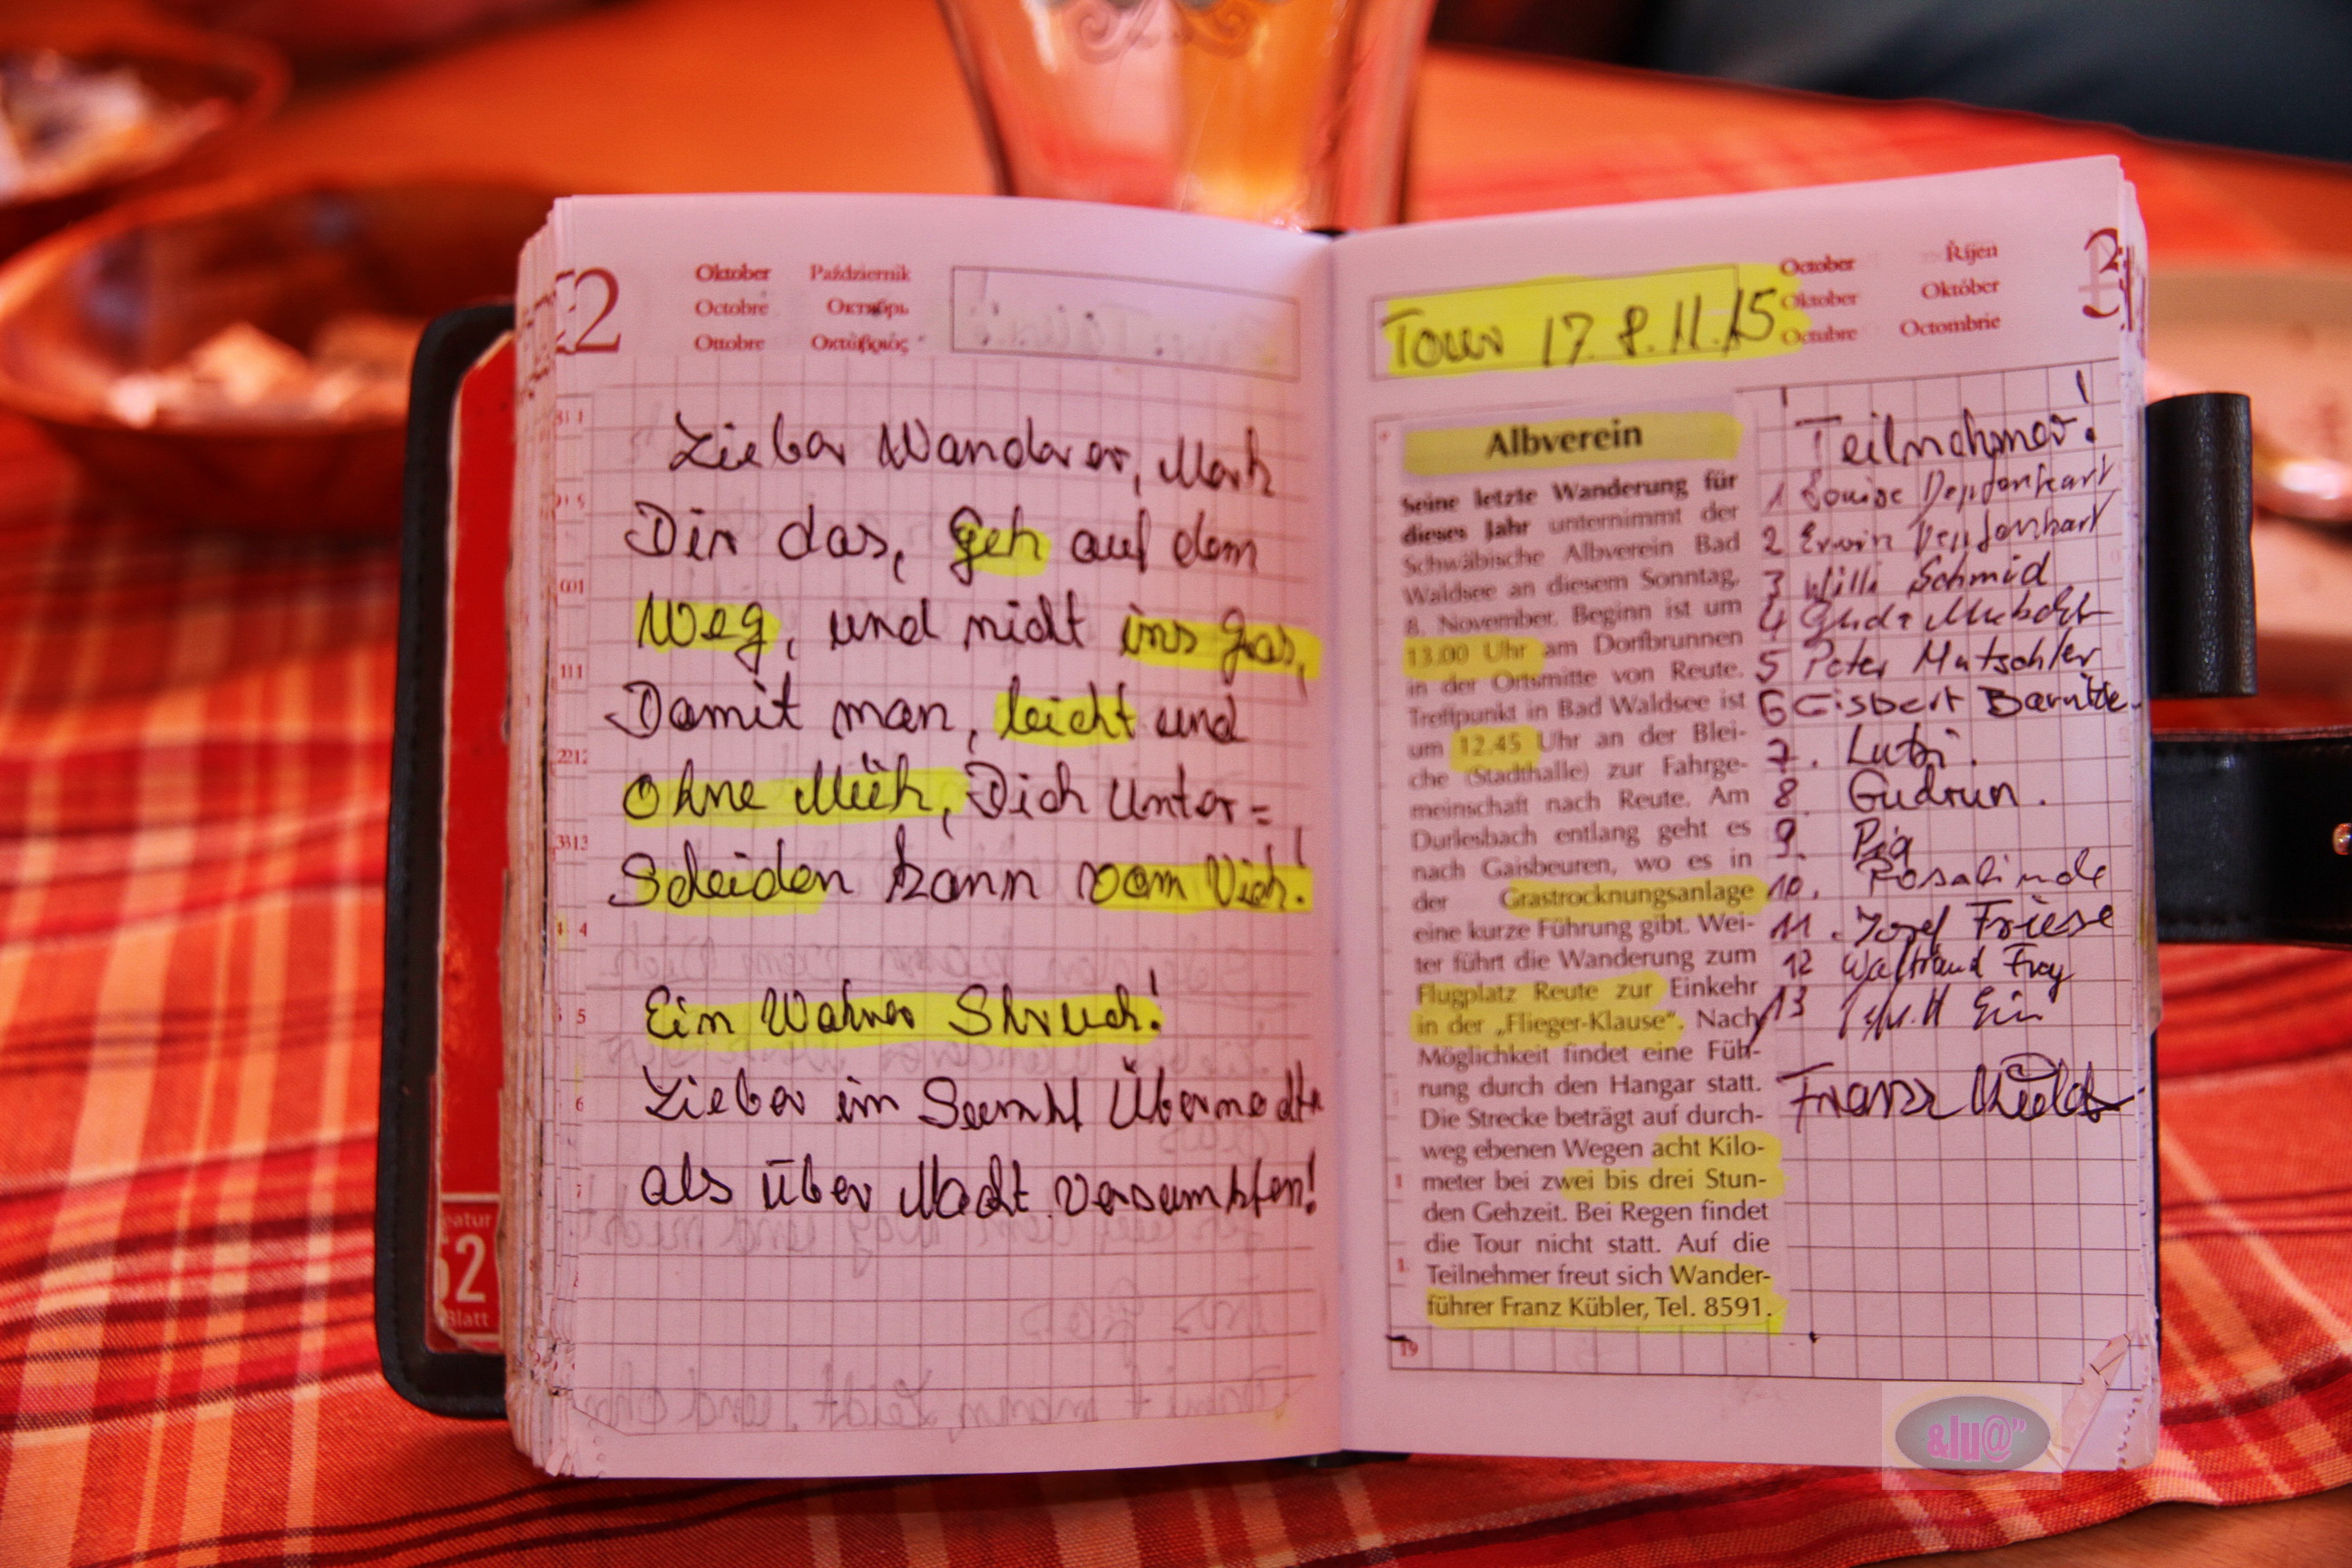 22
Oktober Październik
Octobre Октябрь
Ottobre Οκτώβριος
Lieber Wanderer, Merk
Dir das, geh auf dem
Weg, und nicht ins gras,
Damit man, leicht und
ohne Müh, Dich Unter=
Scheiden kann vom Vieh!
Ein Wahrer Spruch!
Lieber im Sumpf Übernachten
als über Nacht versumpfen!
52
Blatt
Tour 17. 8.11.15
October Říjen
Oktober Október
Octubre Octombrie
Albverein
Seine letzte Wanderung für
dieses Jahr unternimmt der
Schwäbische Albverein Bad
Waldsee an diesem Sonntag,
8. November. Beginn ist um
13.00 Uhr am Dorfbrunnen
in der Ortsmitte von Reute.
Treffpunkt in Bad Waldsee ist
um 12.45 Uhr an der Blei-
che (Stadthalle) zur Fahrge-
meinschaft nach Reute. Am
Durlesbach entlang geht es
nach Gaisbeuren, wo es in
der Grastrocknungsanlage
eine kurze Führung gibt. Wei-
ter führt die Wanderung zum
Flugplatz Reute zur Einkehr
in der „Flieger-Klause“. Nach
Möglichkeit findet eine Füh-
rung durch den Hangar statt.
Die Strecke beträgt auf durch-
weg ebenen Wegen acht Kilo-
meter bei zwei bis drei Stun-
den Gehzeit. Bei Regen findet
die Tour nicht statt. Auf die
Teilnehmer freut sich Wander-
führer Franz Kübler, Tel. 8591.
Teilnehmer!
1 Louise
2 Erwin
3 Willi Schmid
4
5 Peter Mutschler
6 Gisbert
7.
8. Gudrun.
9. Pia
10. Rosalinde
11. Josef Friese
12 Waltraud Frey
13
Franz
19
&lu@”